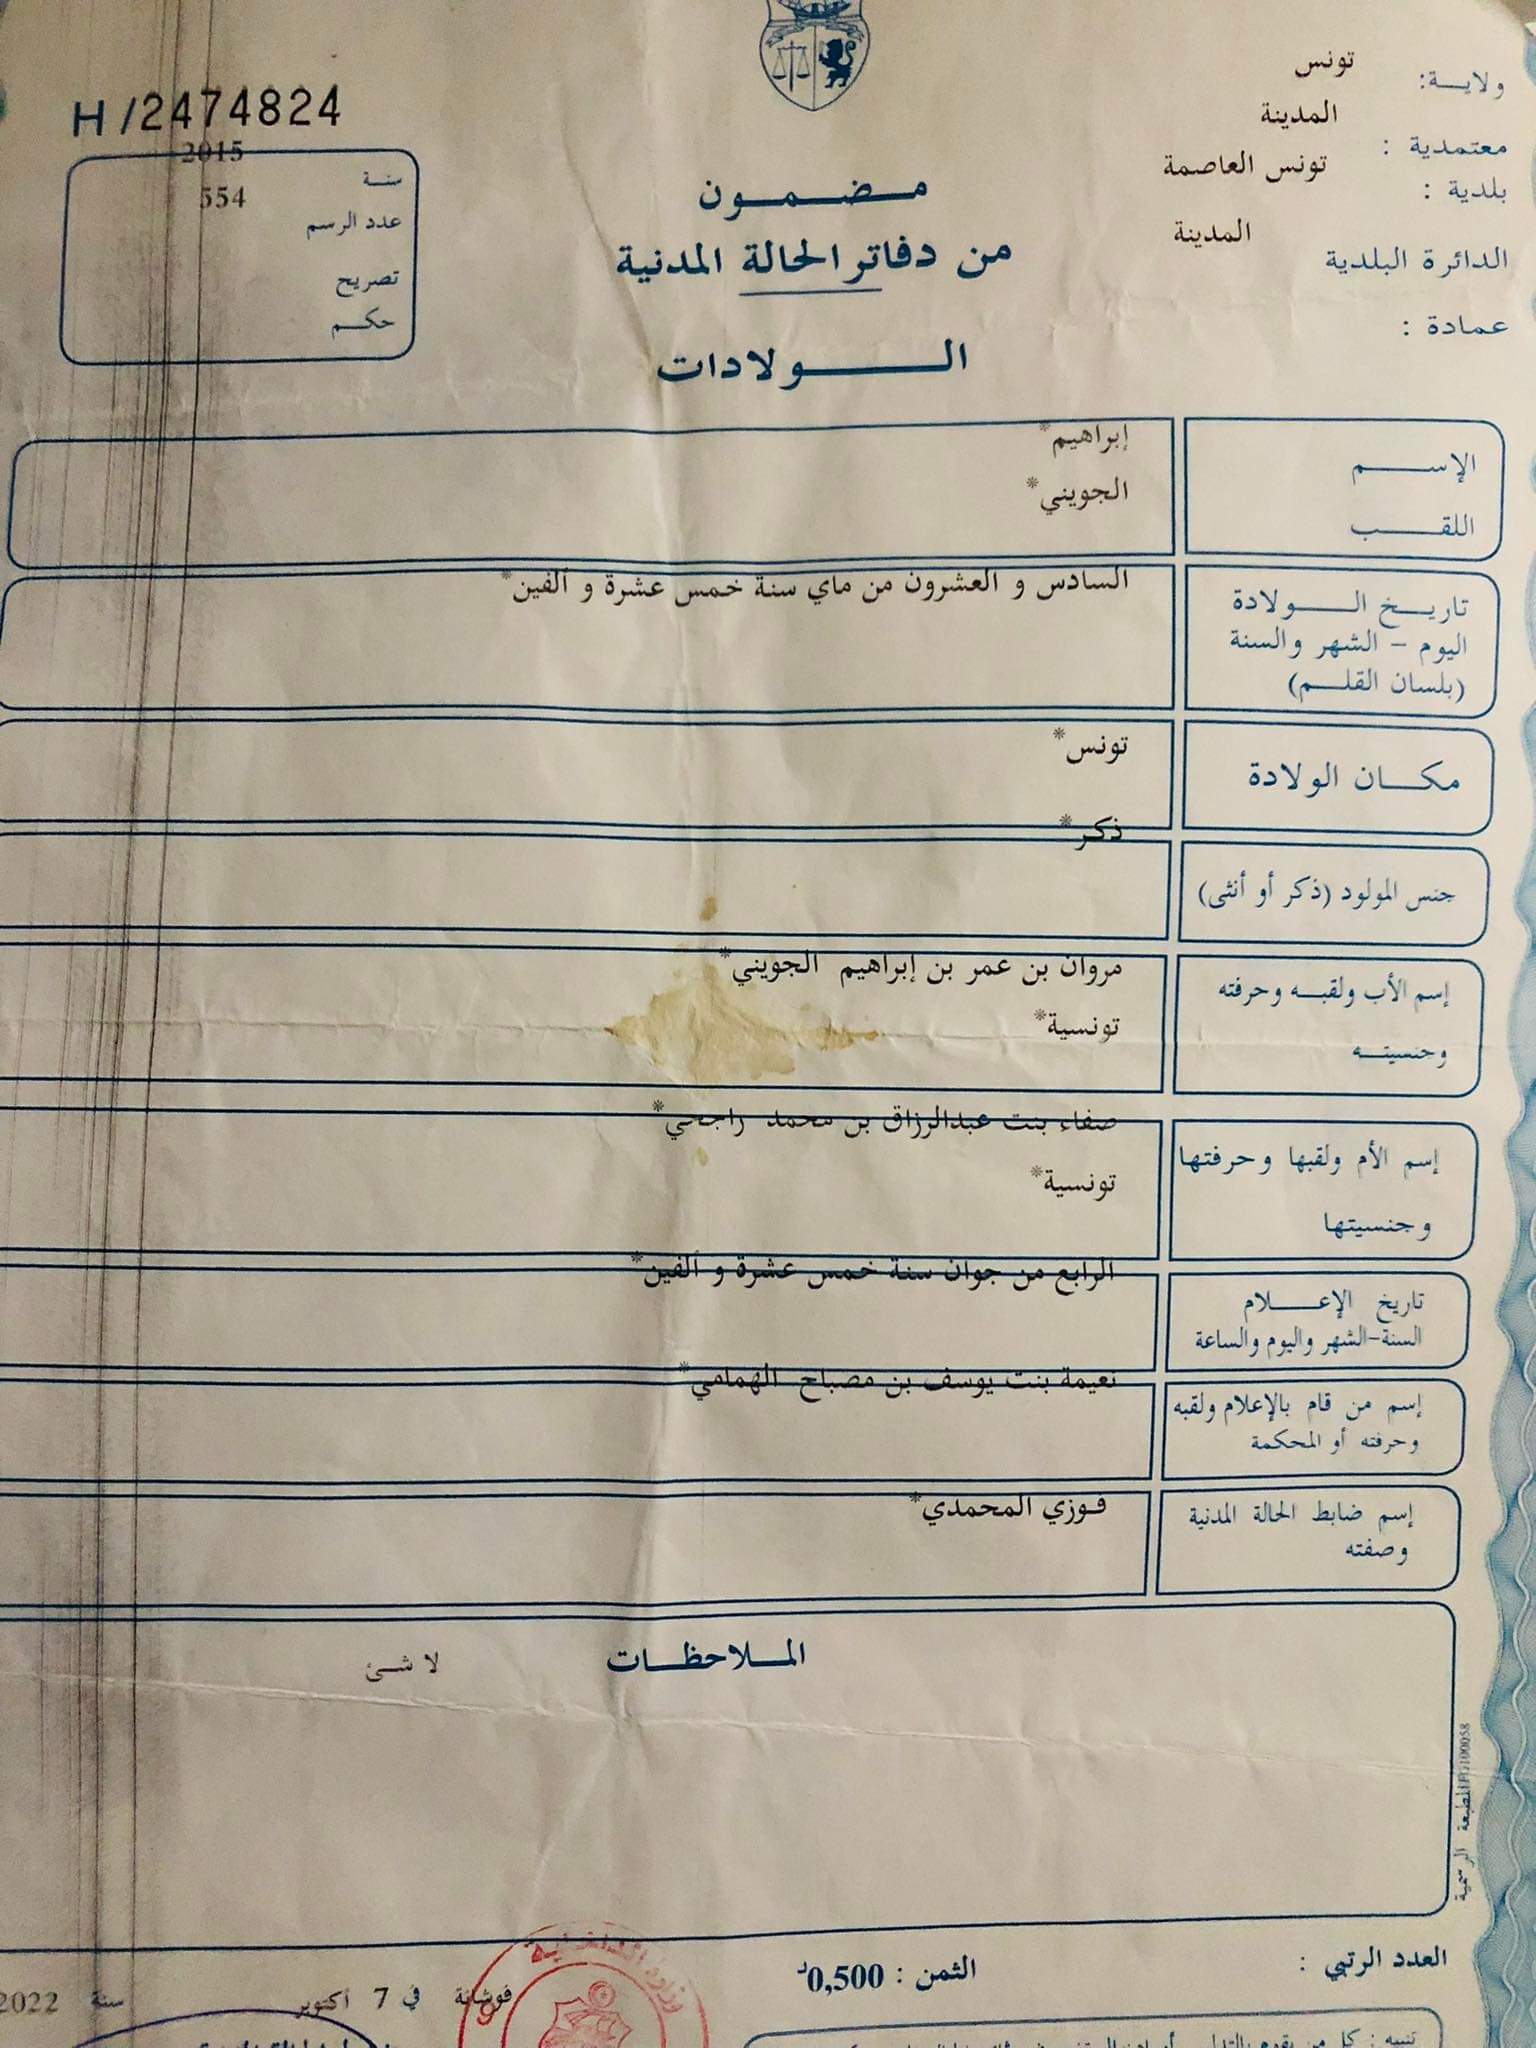 ولايـــة: تونس
معتمدية : المدينة
بلدية : تونس العاصمة
الدائرة البلدية المدينة
عمادة :
H/2474824
سنـة 2015
عدد الرسم 554
تصريح
حكــم
مــضــمــون
من دفاتر الحالة المدنية
الــــولادات
الإســـــم إبراهيم*
اللقـــب الجويني*
تاريـــخ الـــولادة السادس و العشرون من ماي سنة خمس عشرة و ألفين*
اليوم - الشهر والسنة
(بلسان القلـــم)
مكـــان الولادة تونس*
جنس المولود (ذكر أو أنثى) ذكر*
إسم الأب ولقبــه وحرفته مروان بن عمر بن إبراهيم الجويني*
وجنسيتــه تونسية*
إسم الأم ولقبها وحرفتها صفاء بنت عبدالرزاق بن محمد راجحي*
وجنسيتها تونسية*
تاريخ الإعــــلام الرابع من جوان سنة خمس عشرة و ألفين*
السنة-الشهر واليوم والساعة
إسم من قام بالإعلام ولقبه نعيمة بنت يوسف بن مصباح الهمامي*
وحرفته أو المحكمة
إسم ضابط الحالة المدنية فوزي المحمدي*
وصفته
المـــلاحظـــات لا شئ
المطبعة الرسمية
العدد الرتبي :
الثمن : 0,500د
فوشانة في 7 أكتوبر سنة 2022
تنبيه : كل من يقوم